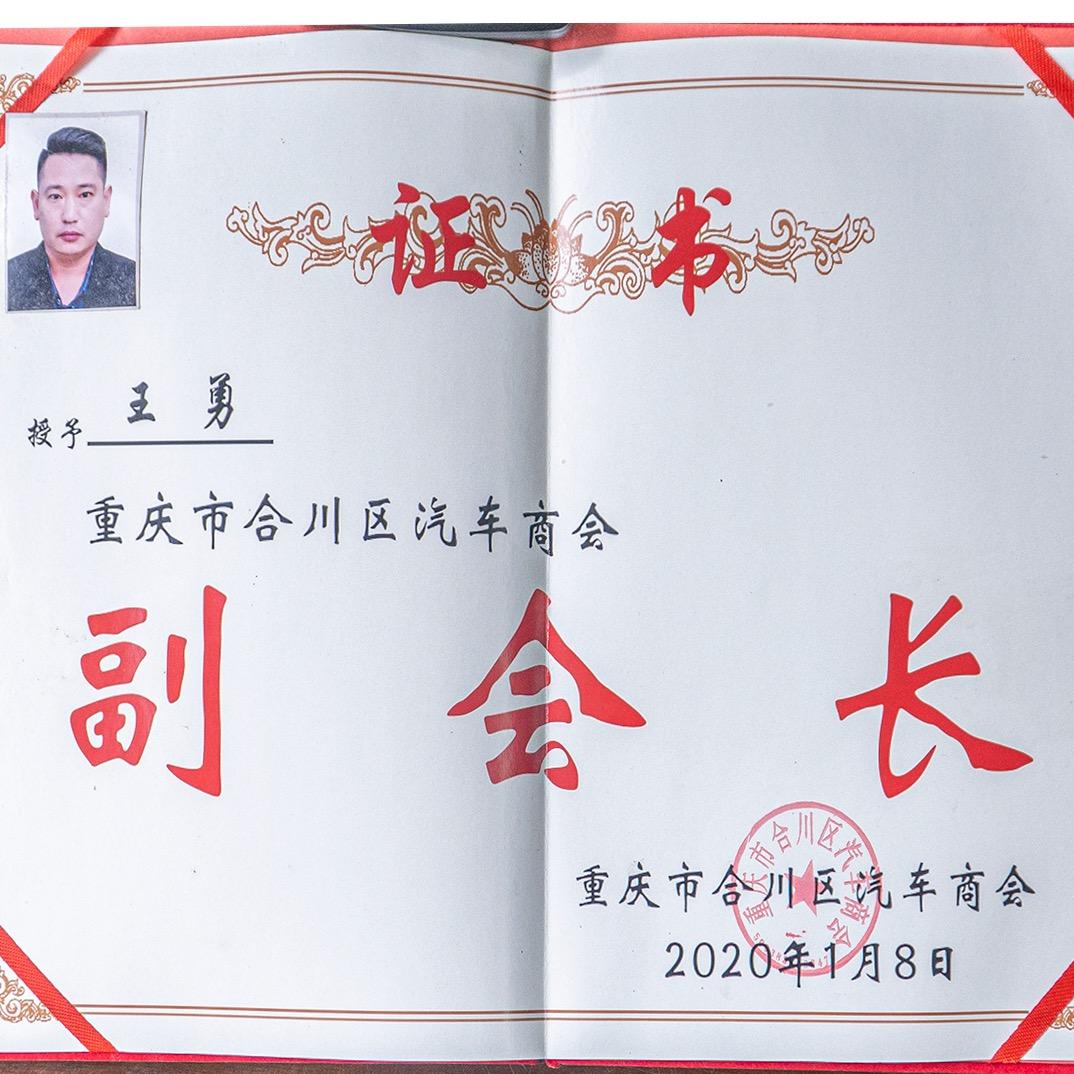 证书
授予 王勇
重庆市合川区汽车商会
副会长
重庆市合川区汽车商会
重庆市合川区汽车商会
2020年1月8日